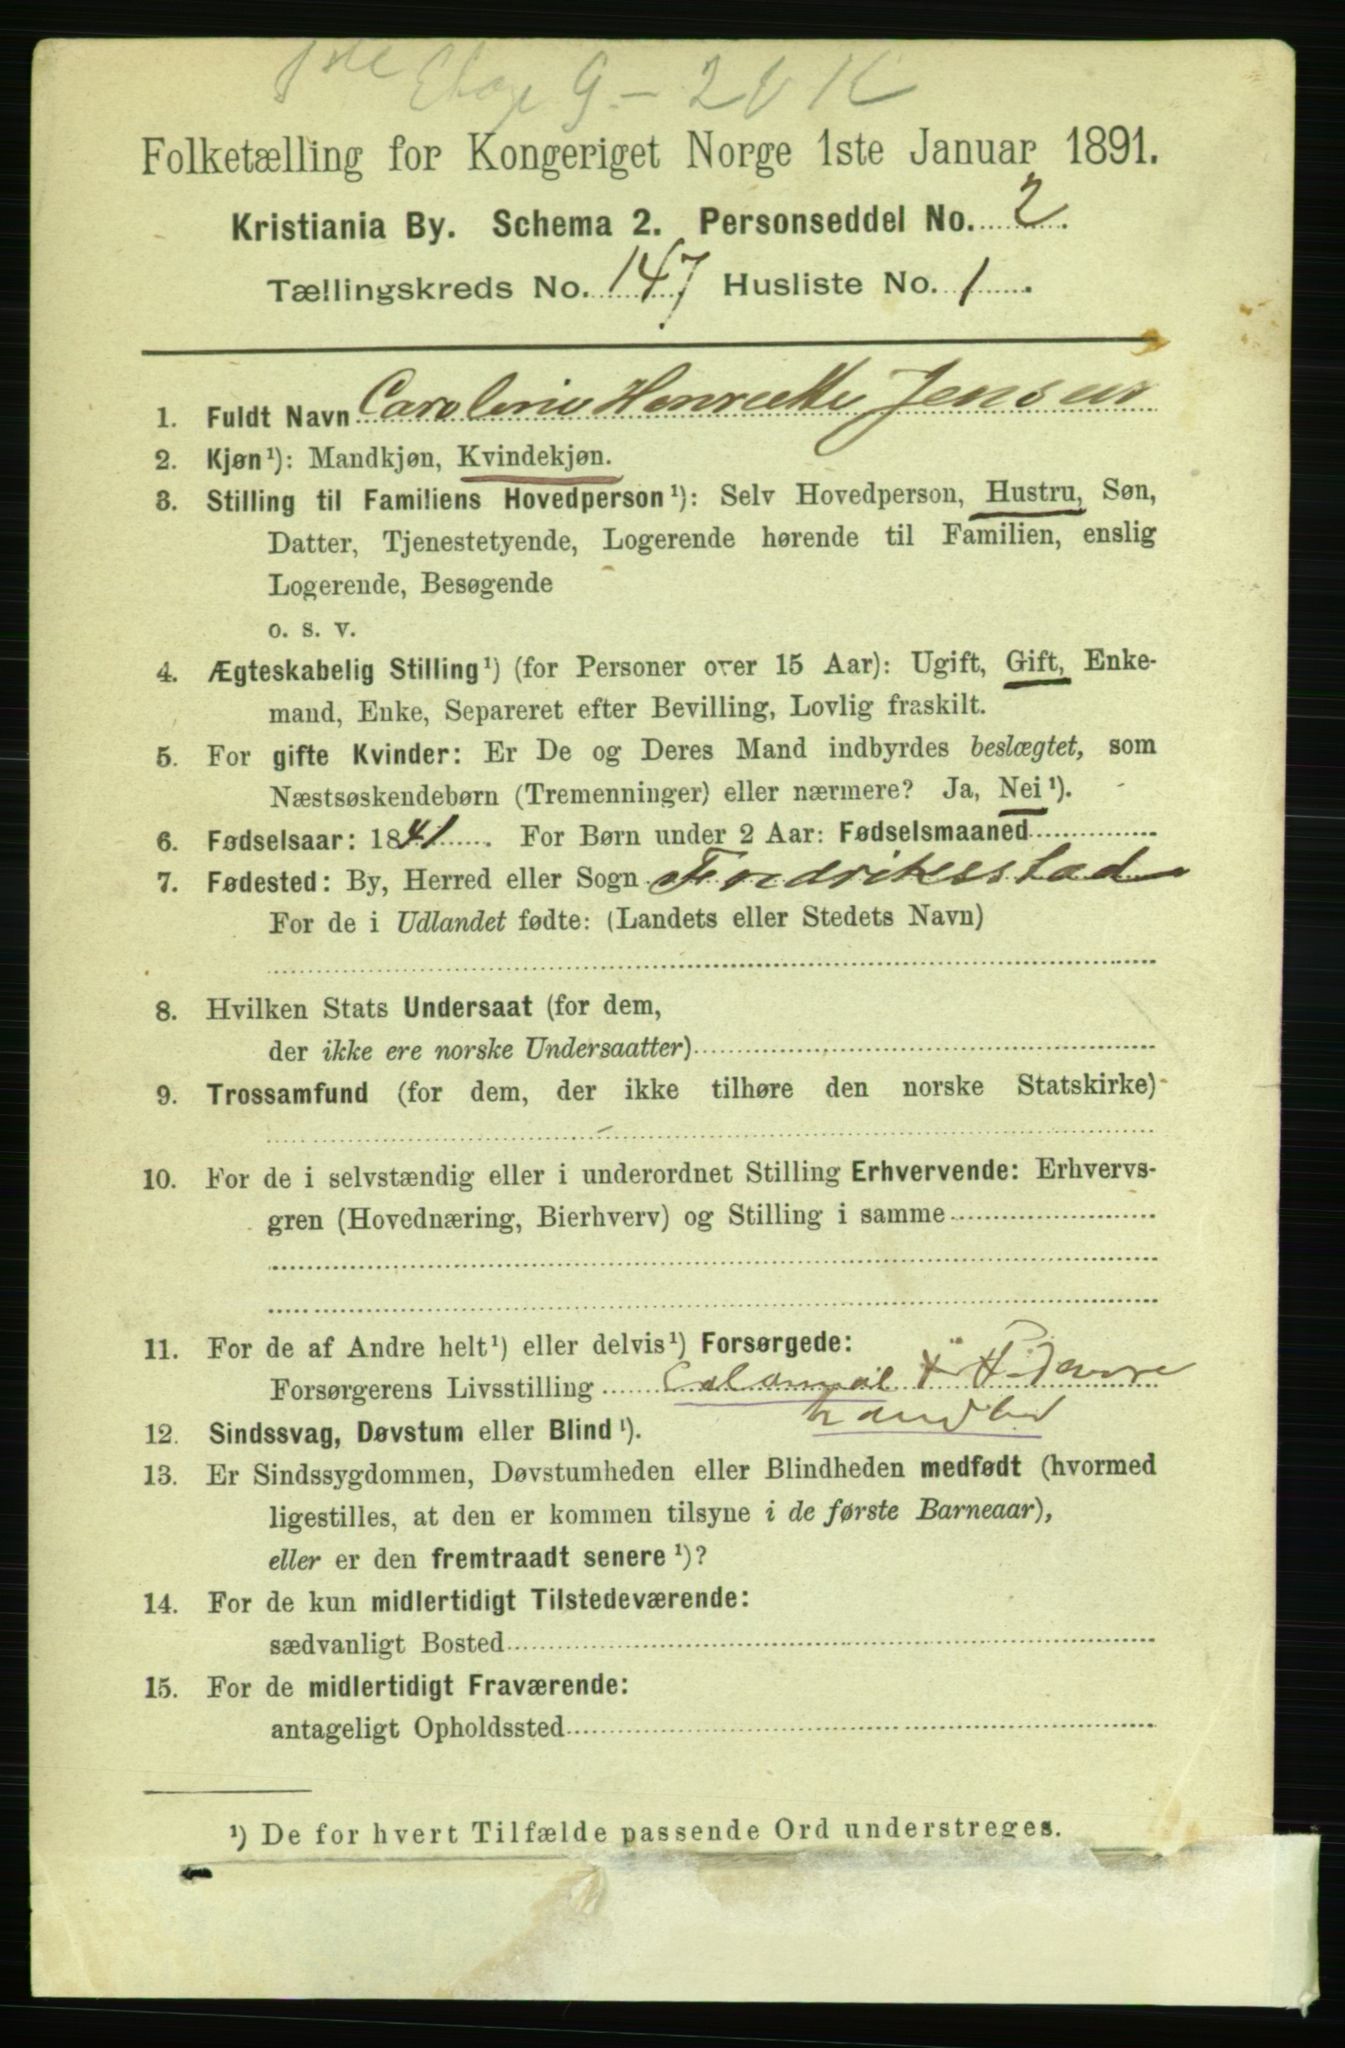 1ste Etage 9 - 2 V K
Folketælling for Kongeriget Norge 1ste Januar 1891.
Kristiania By. Schema 2. Personseddel No. 2.
Tællingskreds No. 147 Husliste No. 1.
1. Fuldt Navn Caroline Henriette Jensen
2. Kjøn¹): Mandkjøn, Kvindekjøn.
3. Stilling til Familiens Hovedperson¹): Selv Hovedperson, Hustru, Søn,
Datter, Tjenestetyende, Logerende hørende til Familien, enslig
Logerende, Besøgende
o. s. v.
4. Ægteskabelig Stilling¹) (for Personer over 15 Aar): Ugift, Gift, Enke-
mand, Enke, Separeret efter Bevilling, Lovlig fraskilt.
5. For gifte Kvinder: Er De og Deres Mand indbyrdes beslægtet, som
Næstsøskendebørn (Tremenninger) eller nærmere? Ja, Nei¹).
6. Fødselsaar: 1841. For Børn under 2 Aar: Fødselsmaaned
7. Fødested: By, Herred eller Sogn Fredriksstad
For de i Udlandet fødte: (Landets eller Stedets Navn)
8. Hvilken Stats Undersaat (for dem,
der ikke ere norske Undersaatter)
9. Trossamfund (for dem, der ikke tilhøre den norske Statskirke)
10. For de i selvstændig eller i underordnet Stilling Erhvervende: Erhvervs-
gren (Hovednæring, Bierhverv) og Stilling i samme
11. For de af Andre helt¹) eller delvis¹) Forsørgede:
Forsørgerens Livsstilling Colonial
12. Sindssvag, Døvstum eller Blind¹).
13. Er Sindssygdommen, Døvstumheden eller Blindheden medfødt (hvormed
ligestilles, at den er kommen tilsyne i de første Barneaar),
eller er den fremtraadt senere¹)?
14. For de kun midlertidigt Tilstedeværende:
sædvanligt Bosted
15. For de midlertidigt Fraværende:
antageligt Opholdssted
¹) De for hvert Tilfælde passende Ord understreges.